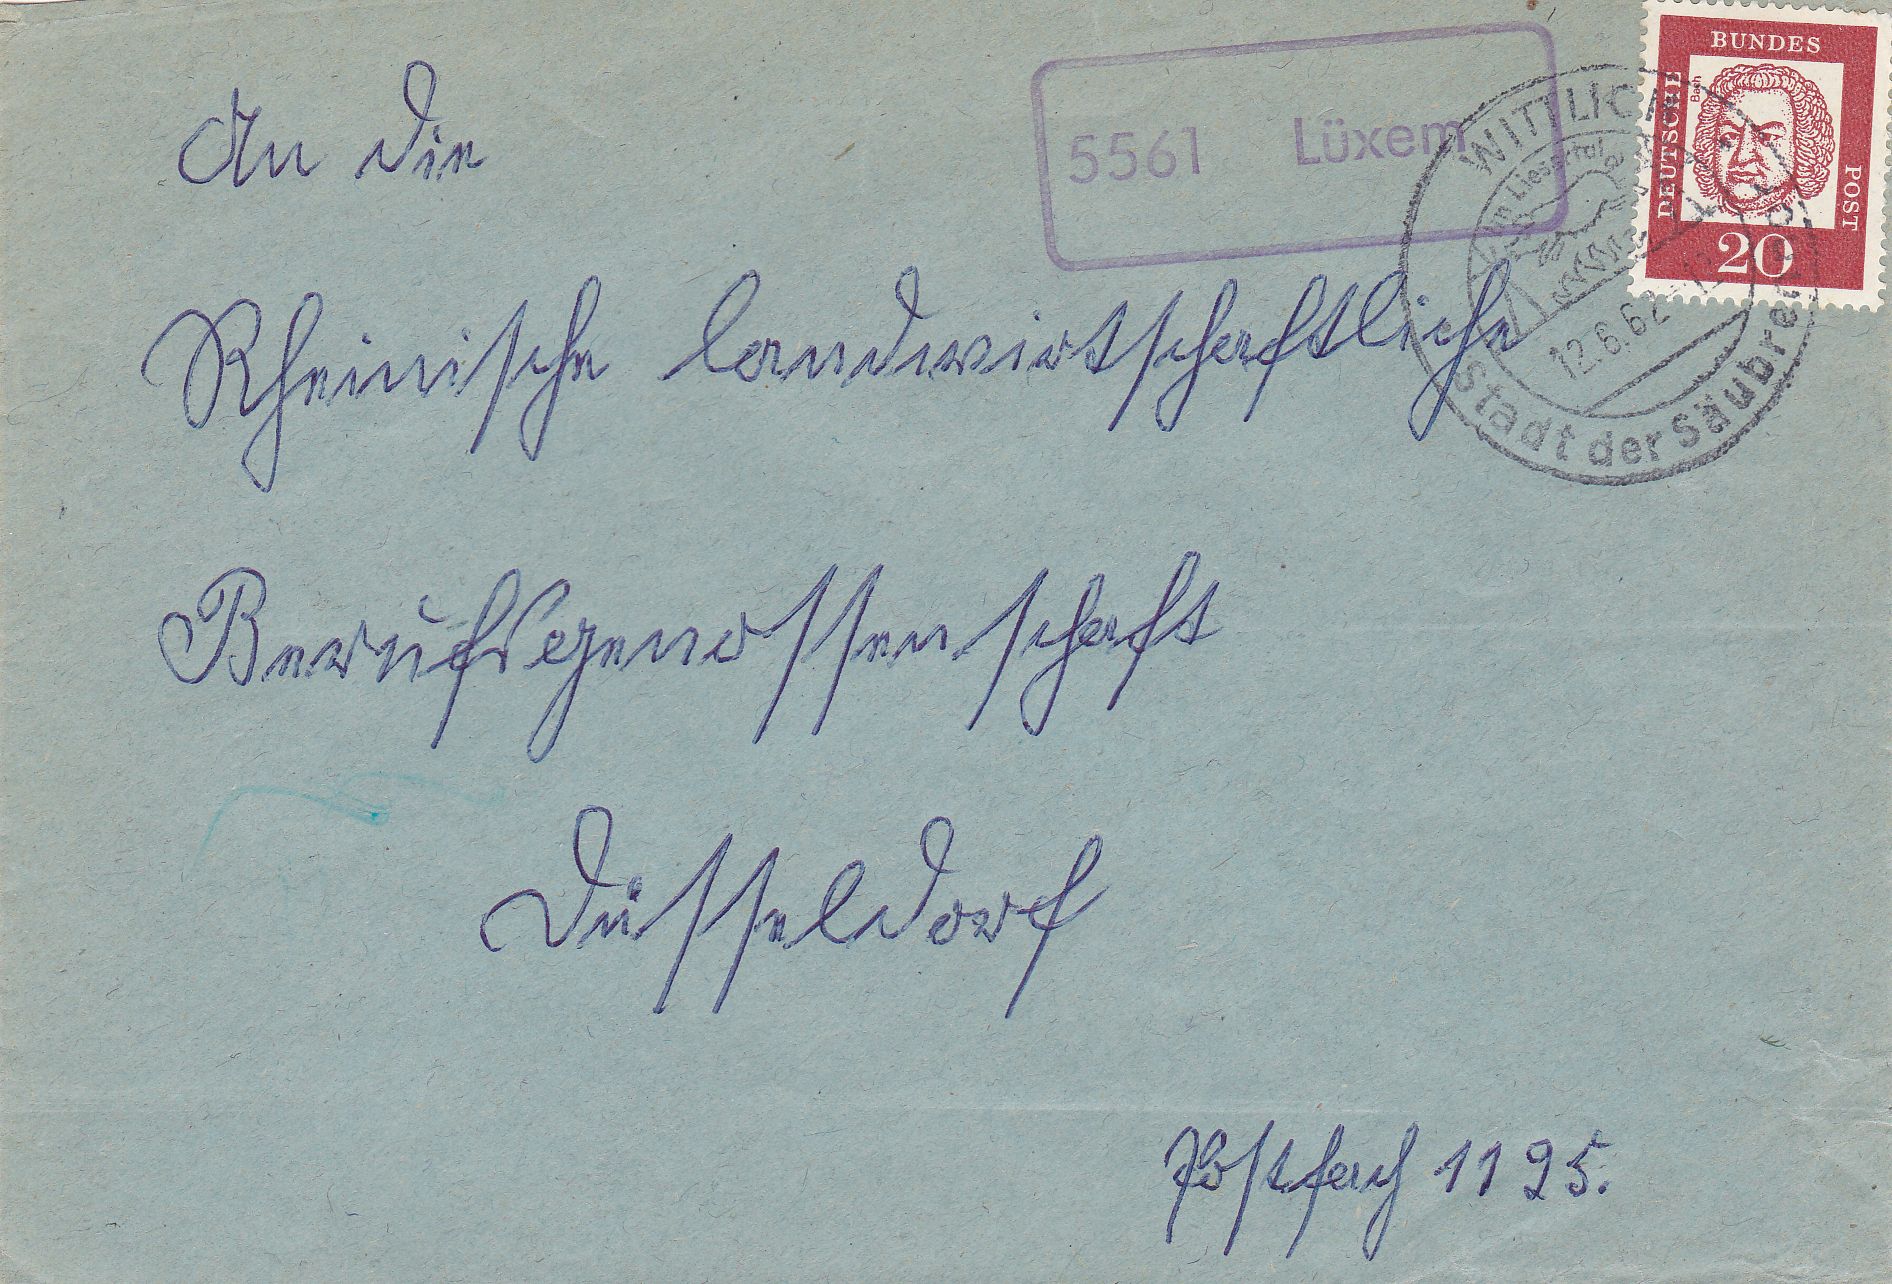 An die
5561 Lüxem
WITTLICH
im Liesertal
12.6.62
Stadt der Säubrenner
DEUTSCHE
BUNDES
POST
Bach
20
Rheinische landwirtschaftliche
Berufsgenossenschaft
Düsseldorf
Postfach 1195.